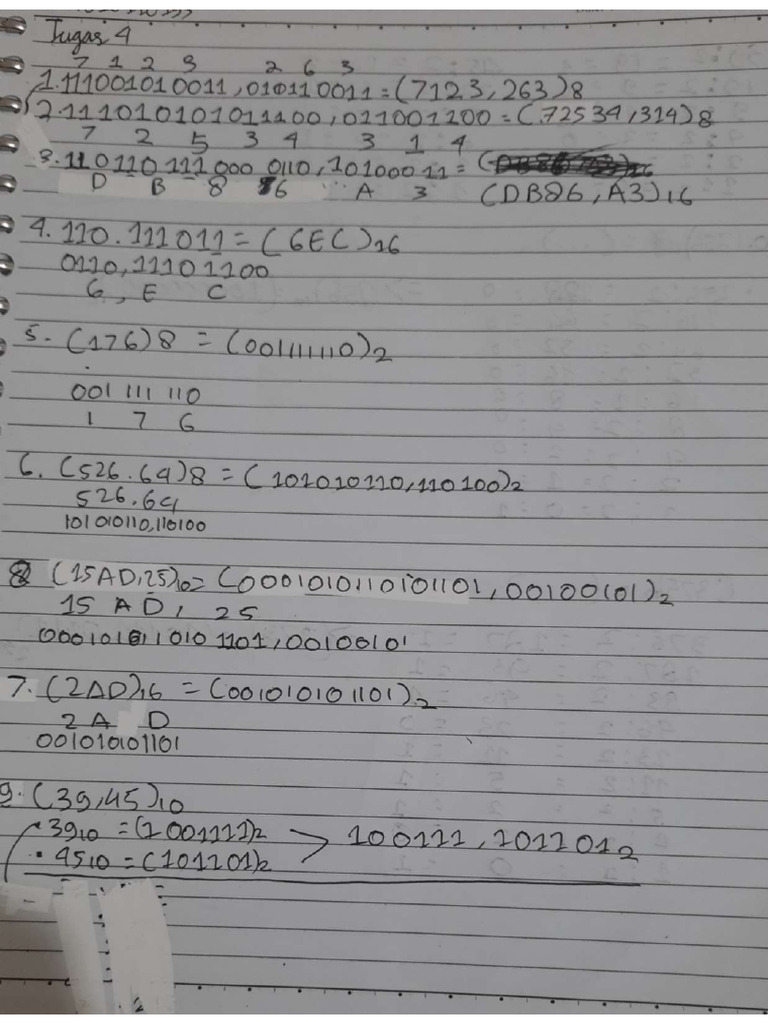 Tugas 4
7 1 2 3 2 6 3
1.111001010011,010110011=(7123,263)8
2.111101010101011100,011001100=(72534,314)8
7 2 5 3 4 3 1 4
3.110110111000 0110,10100011=
D B 8 6 A 3 (DB86,A3)16
4.110.111011=(6EC)16
0110,11101100
6, E C
5. (176)8 = (001111110)2
001 111 110
1 7 6
6. (526.64)8 = (101010110,110100)2
526.64
101010110,110100
8 (15AD,25)10= (0001010110101101,00100101)2
15 AD, 25
0001010110101101,00100101
7. (2AD)16 = (001010101101)2
2 A D
001010101101
9. (39,45)10
• 3910 =(1001111)2 > 100111,1011012
• 4510 =(101101)2